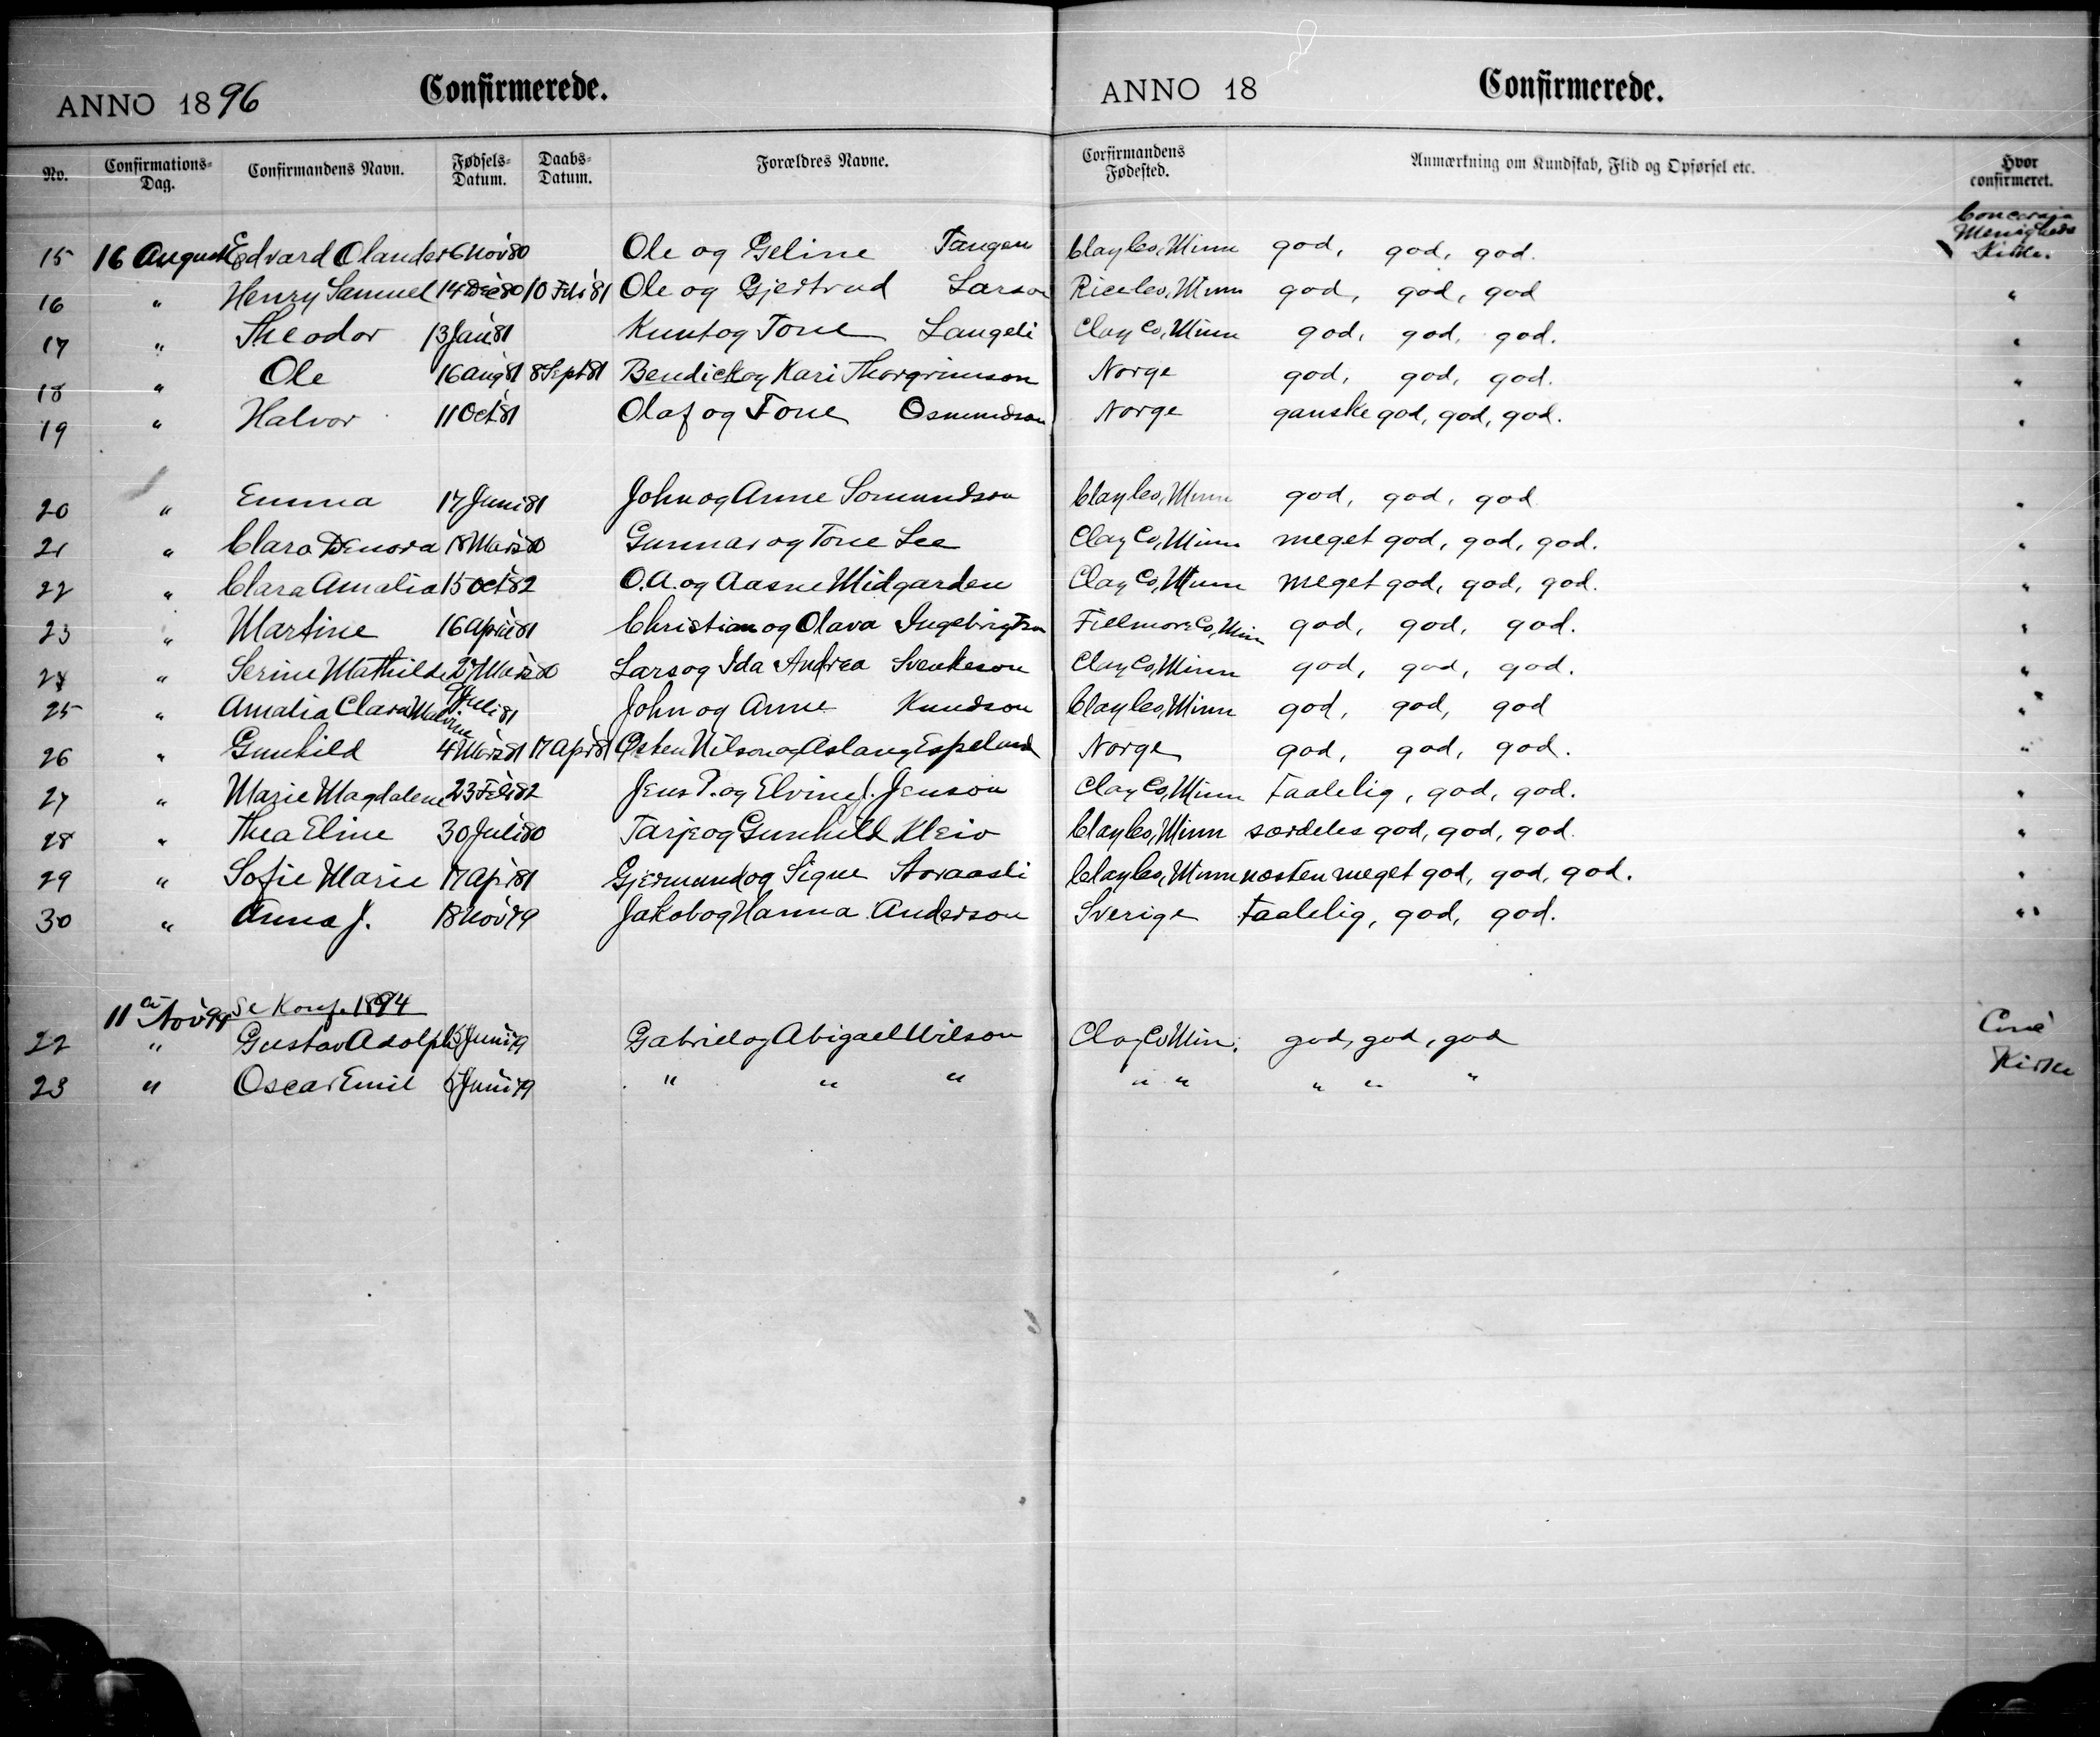 ANNO 1896 Confirmerede. ANNO 18 Confirmerede.
No. Confirmations-Dag. Confirmandens Navn. Fødsels-Datum. Daabs-Datum. Forældres Navne. Corfirmandens Fødested. Anmærkning om Kundskab, Flid og Opførsel etc. Hvor confirmeret.
15 16 August Edvard Olander 6 Nov 80 Ole og Geline Tangen Clay Co, Minn god, god, god. Concordia Menigheds Kirke.
16 " Henry Samuel 14 Dec 80 10 Feb 81 Ole og Gjertrud Larson Rice Co, Minn god, god, god "
17 " Theodor 13 Jan 81 Knut og Tone Langeli Clay Co, Minn god, god, god. "
18 " Ole 16 aug 81 8 Sept 81 Bendick og Kari Thorgrimson Norge god, god, god. "
19 " Halvor 11 Oct 81 Olaf og Tone Osmundson Norge ganske god, god, god. "
20 " Emma 17 Juni 81 John og Anne Somundson Clay Co, Minn god, god, god "
21 " Clara Denora 18 Mars 80 Gunnar og Tone Lee Clay Co, Minn meget god, god, god. "
22 " Clara Amalia 15 Oct 82 O. A. og Aasne Midgarden Clay Co, Minn meget god, god, god. "
23 " Martine 16 April 81 Christian og Olava Ingebrigtson Fillmore Co, Minn god, god, god. "
24 " Serine Mathilde 27 Mars 80 Lars og Ida Andrea Svenkeson Clay Co, Minn god, god, god. "
25 " Amalia Clara Malvine Juli 81 John og Anne Knudson Clay Co, Minn god, god, god "
26 " Gunhild 4 Mars 81 17 Apr 81 Østen Nilson og Aslaug Espeland Norge god, god, god. "
27 " Marie Magdalene 23 Feb 82 Jens P. og Elvine J. Jenson Clay Co, Minn taalelig, god, god. "
28 " Thea Eline 30 Juli 80 Tarje og Gunhild Kleiv Clay Co, Minn særdeles god, god, god. "
29 " Sofie Marie 17 Apr 81 Gjermund og Signe Storaasli Clay Co, Minn næsten meget god, god, god. "
30 " Anna J. 18 Nov 79 Jakob og Hanna Anderson Sverige taalelig, god, god. "
11 Nov 94 Se Konf. 1894
22 " Gustav Adolph 5 Juni 79 Gabriel og Abigael Wilson Clay Co Min. god, god, god Conc
23 " Oscar Emil 5 Juni 79 " " " " " " " " Kirke